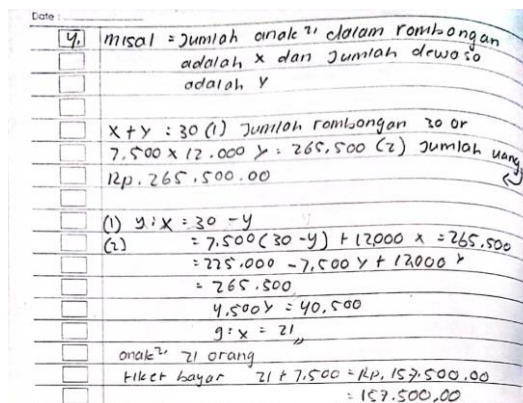 Date :
4. misal = Jumlah anak2 dalam rombongan
adalah x dan Jumlah dewoso
adalah y
x + y : 30 (1) Jumlah rombongan 30 or
7.500 x 12.000 y = 265,500 (2) Jumlah uang
Rp. 265.500.00
(1) y : x = 30 - y
(2) = 7,500 (30 - y) + 12000 x = 265,500
= 225.000 - 7,500 y + 12,000 y
= 265.500
4,500 y = 40,500
9 : x = 21
anak2 21 orang
tiket bayar 21 + 7.500 = Rp. 157.500,00
= 157.500,00